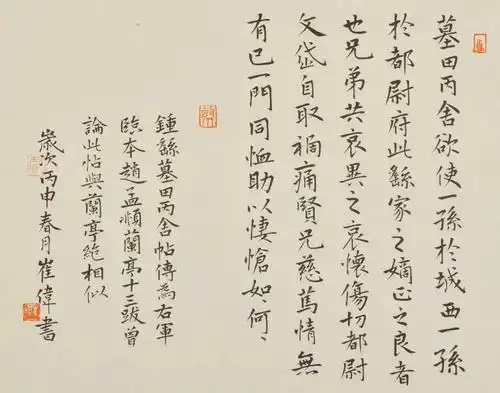 墓田丙舍欲使一孫於城西一孫
於都尉府此繇家之嫡正之良者
也兄弟共哀異之哀懷傷切都尉
文岱自取禍痛賢兄慈篤情無
有已一門同恤助以悽愴如何〻
鍾繇墓田丙舍帖傳為右軍
臨本趙孟頫蘭亭十三跋曾
論此帖與蘭亭絶相似
歲次丙申春月崔偉書